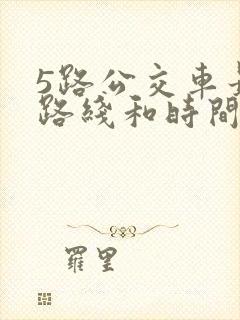 5路公交車
路綫和時間
羅里